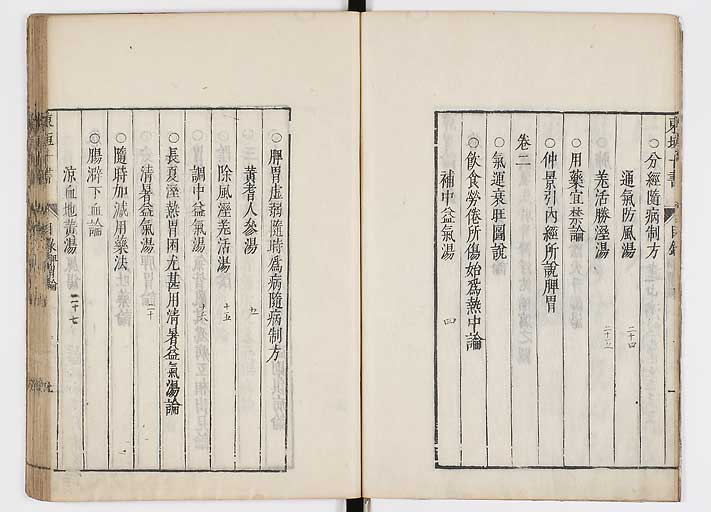 東垣十書 目錄
○分經隨病制方
通氣防風湯 二十四
羌活勝溼湯 二十五
○用藥宜禁論
○仲景引內經所說脾胃
卷二
○氣運衰旺圖說
○飲食勞倦所傷始爲熱中論
補中益氣湯 四
○脾胃虛弱隨時爲病隨病制方
黃耆人參湯
除風溼羌活湯 十五
調中益氣湯 十六
○長夏溼熱胃困尤甚用清暑益氣湯論
清暑益氣湯 二十
○隨時加減用藥法
○腸澼下血論
涼血地黃湯 二十七
東垣十書 目錄脾胃論